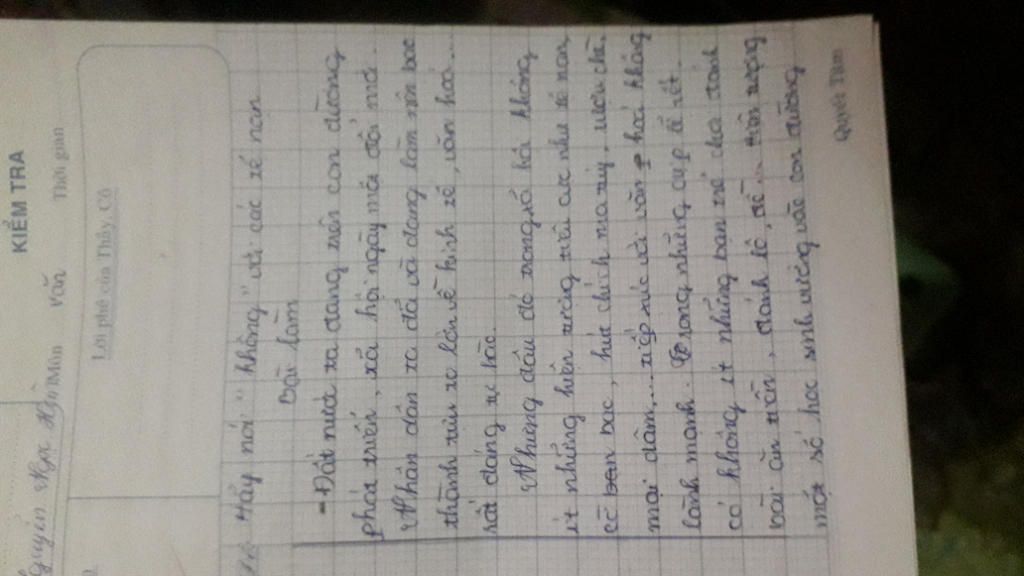 KIỂM TRA
Nguyễn Nga Môn Văn Thời gian
Lời phê của Thầy, Cô
Hãy nói "không" với các tệ nạn
Bài làm
- Đất nước ta đang trên con đường
phát triển, xã hội ngày một đổi mới.
Nhân dân ta đã và đang làm nên bao
thành tựu to lớn về kinh tế, văn hoá...
rất đáng tự hào.
Nhưng đâu đó trong xã hội không
ít những hiện tượng tiêu cực như tệ nạn
cờ bạc, hút chích ma túy, rượu chè,
mại dâm,... tiếp xúc với văn hoá không
lành mạnh. Trong những dịp lễ tết.
có không ít những bạn trẻ chơi đánh
bài ăn tiền, đánh lô, đề... Hiện tượng
một số học sinh vướng vào con đường
Quyết Tâm